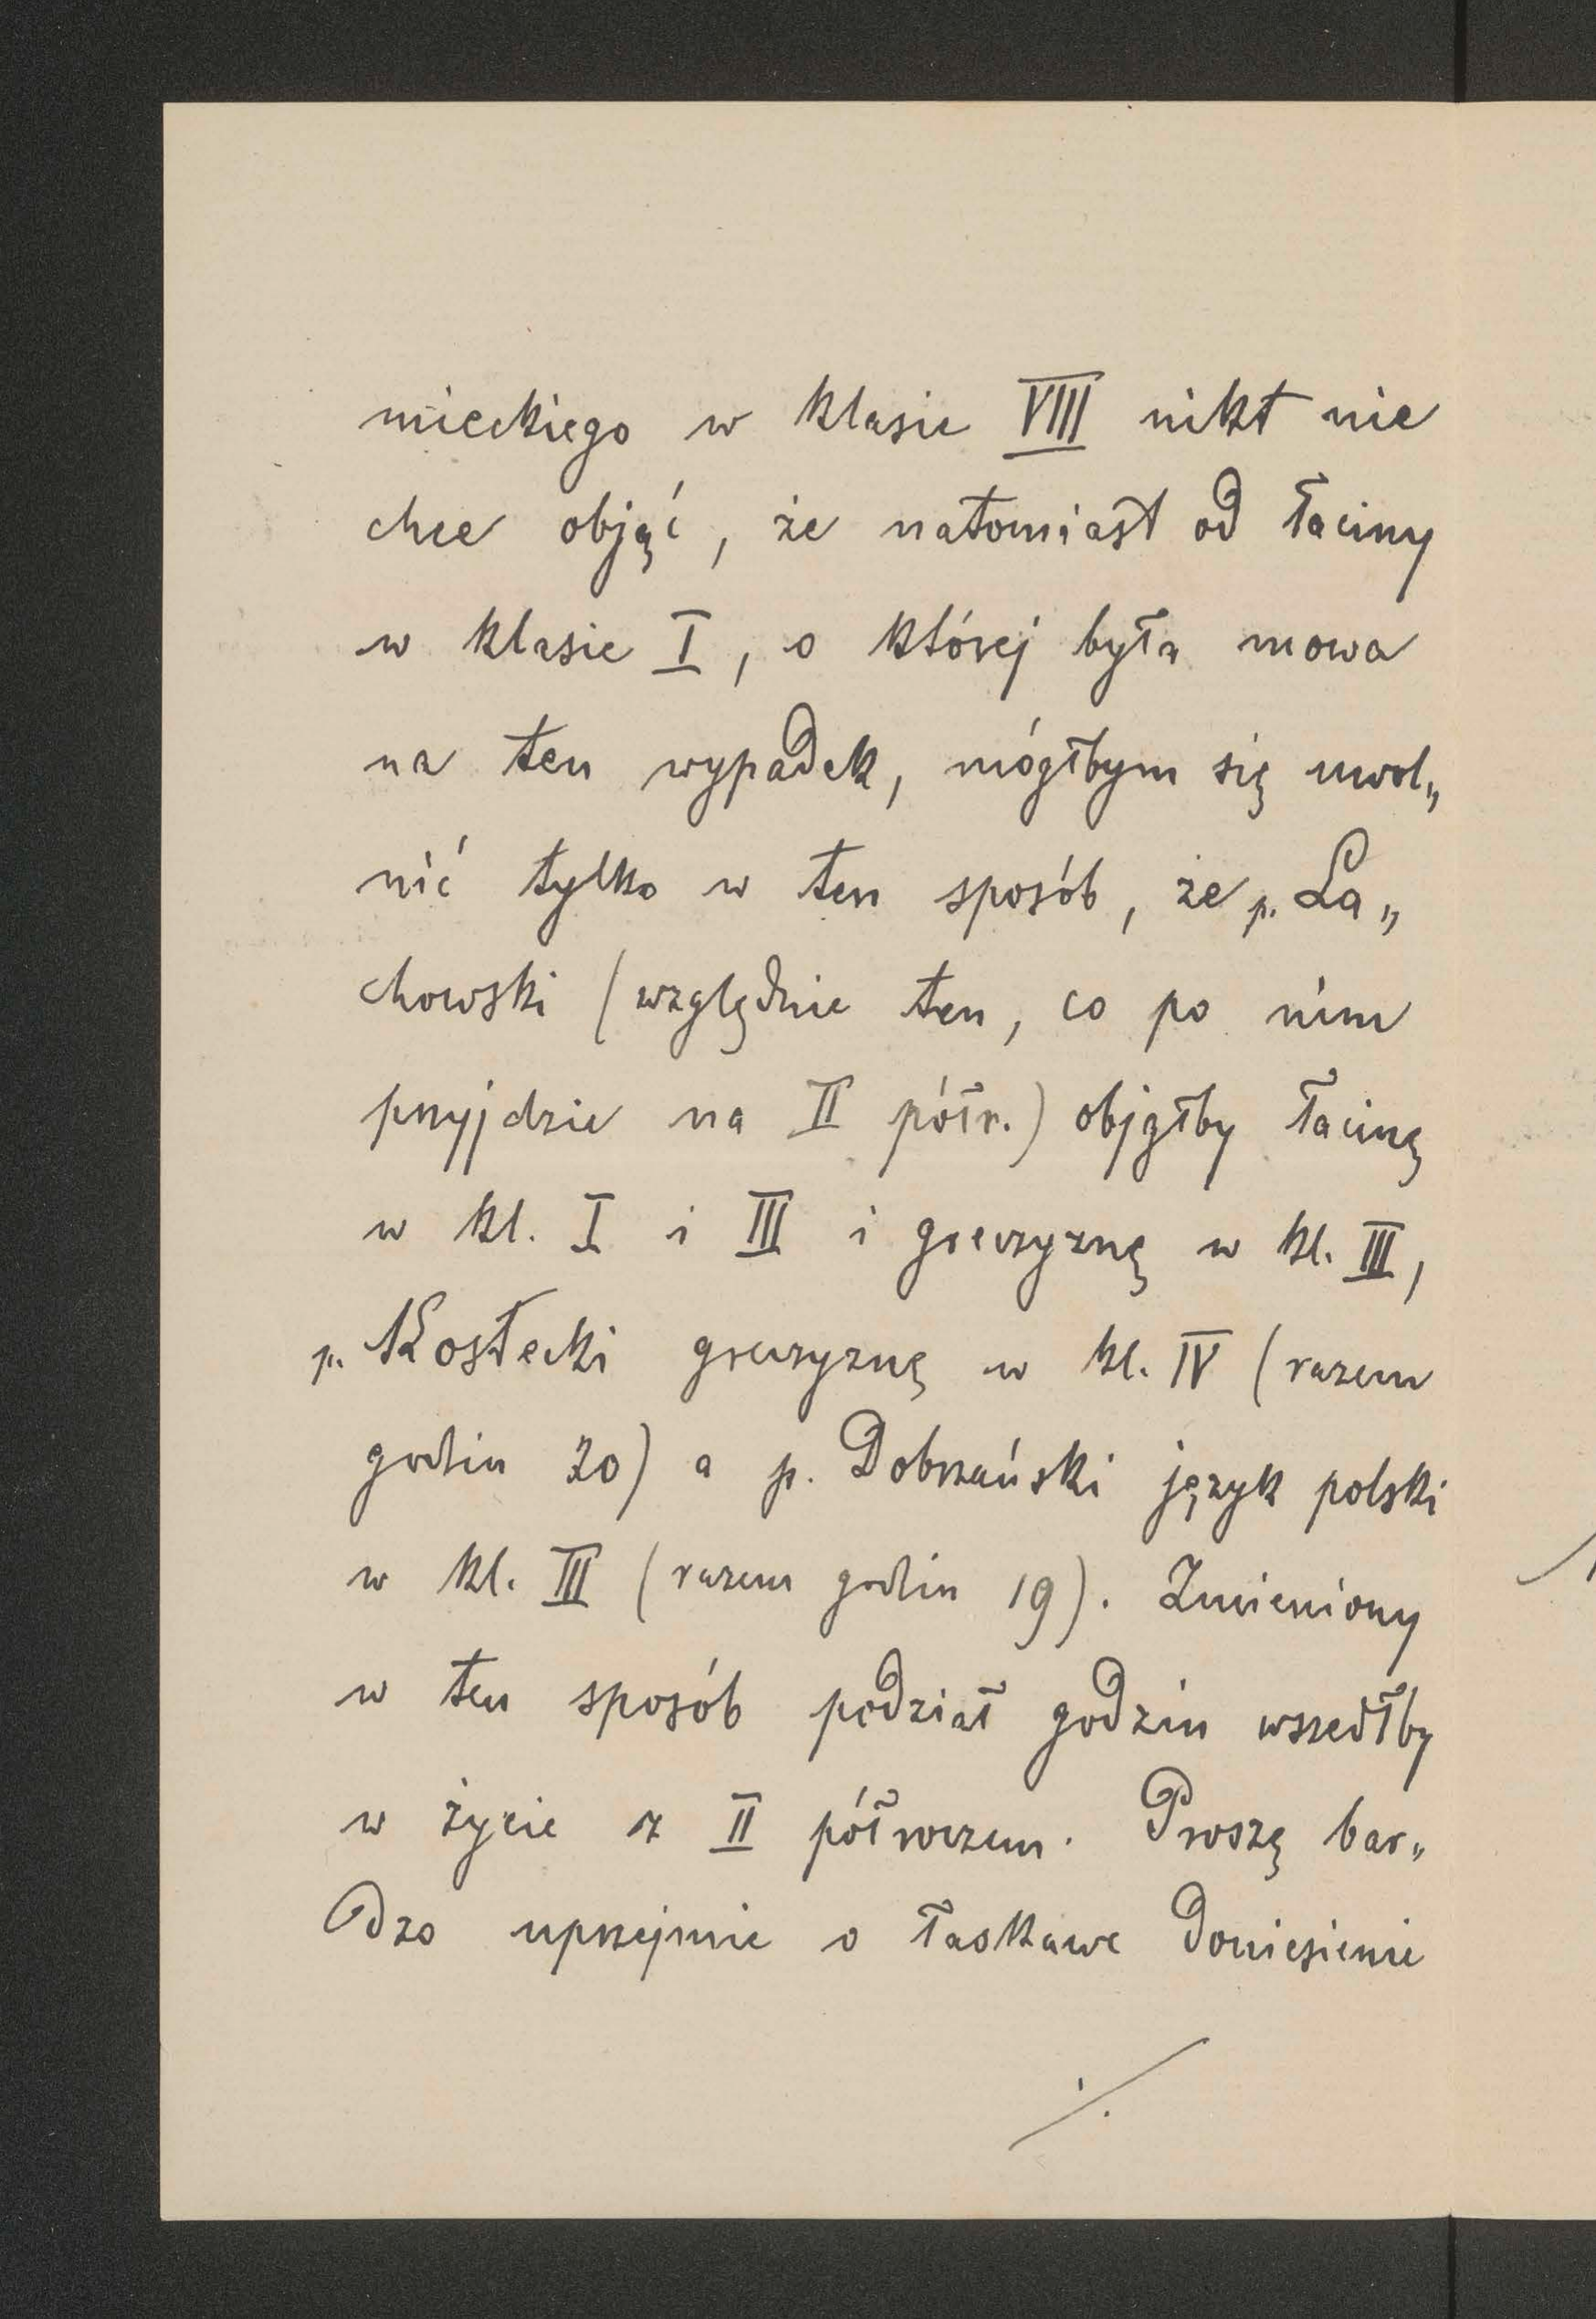 mieckiego w klasie VIII nikt nie
chce objąć, że natomiast od łaciny
w klasie I, o której była mowa
na ten wypadek, mógłbym się uwol„
nić tylko w ten sposób, że p. La„
chowski (względnie ten, co po nim
przyjdzie na II półr.) objąłby łacinę
w kl. I i III i greczyznę w kl. III,
p. Kostecki greczyznę w kl. IV (razem
godzin 20) a p. Dobrzański język polski
w kl. III (razem godzin 19). Zmieniony
w ten sposób podział godzin wszedłby
w życie z II półroczem. Proszę bar„
dzo uprzejmie o łaskawe doniesienie
./.